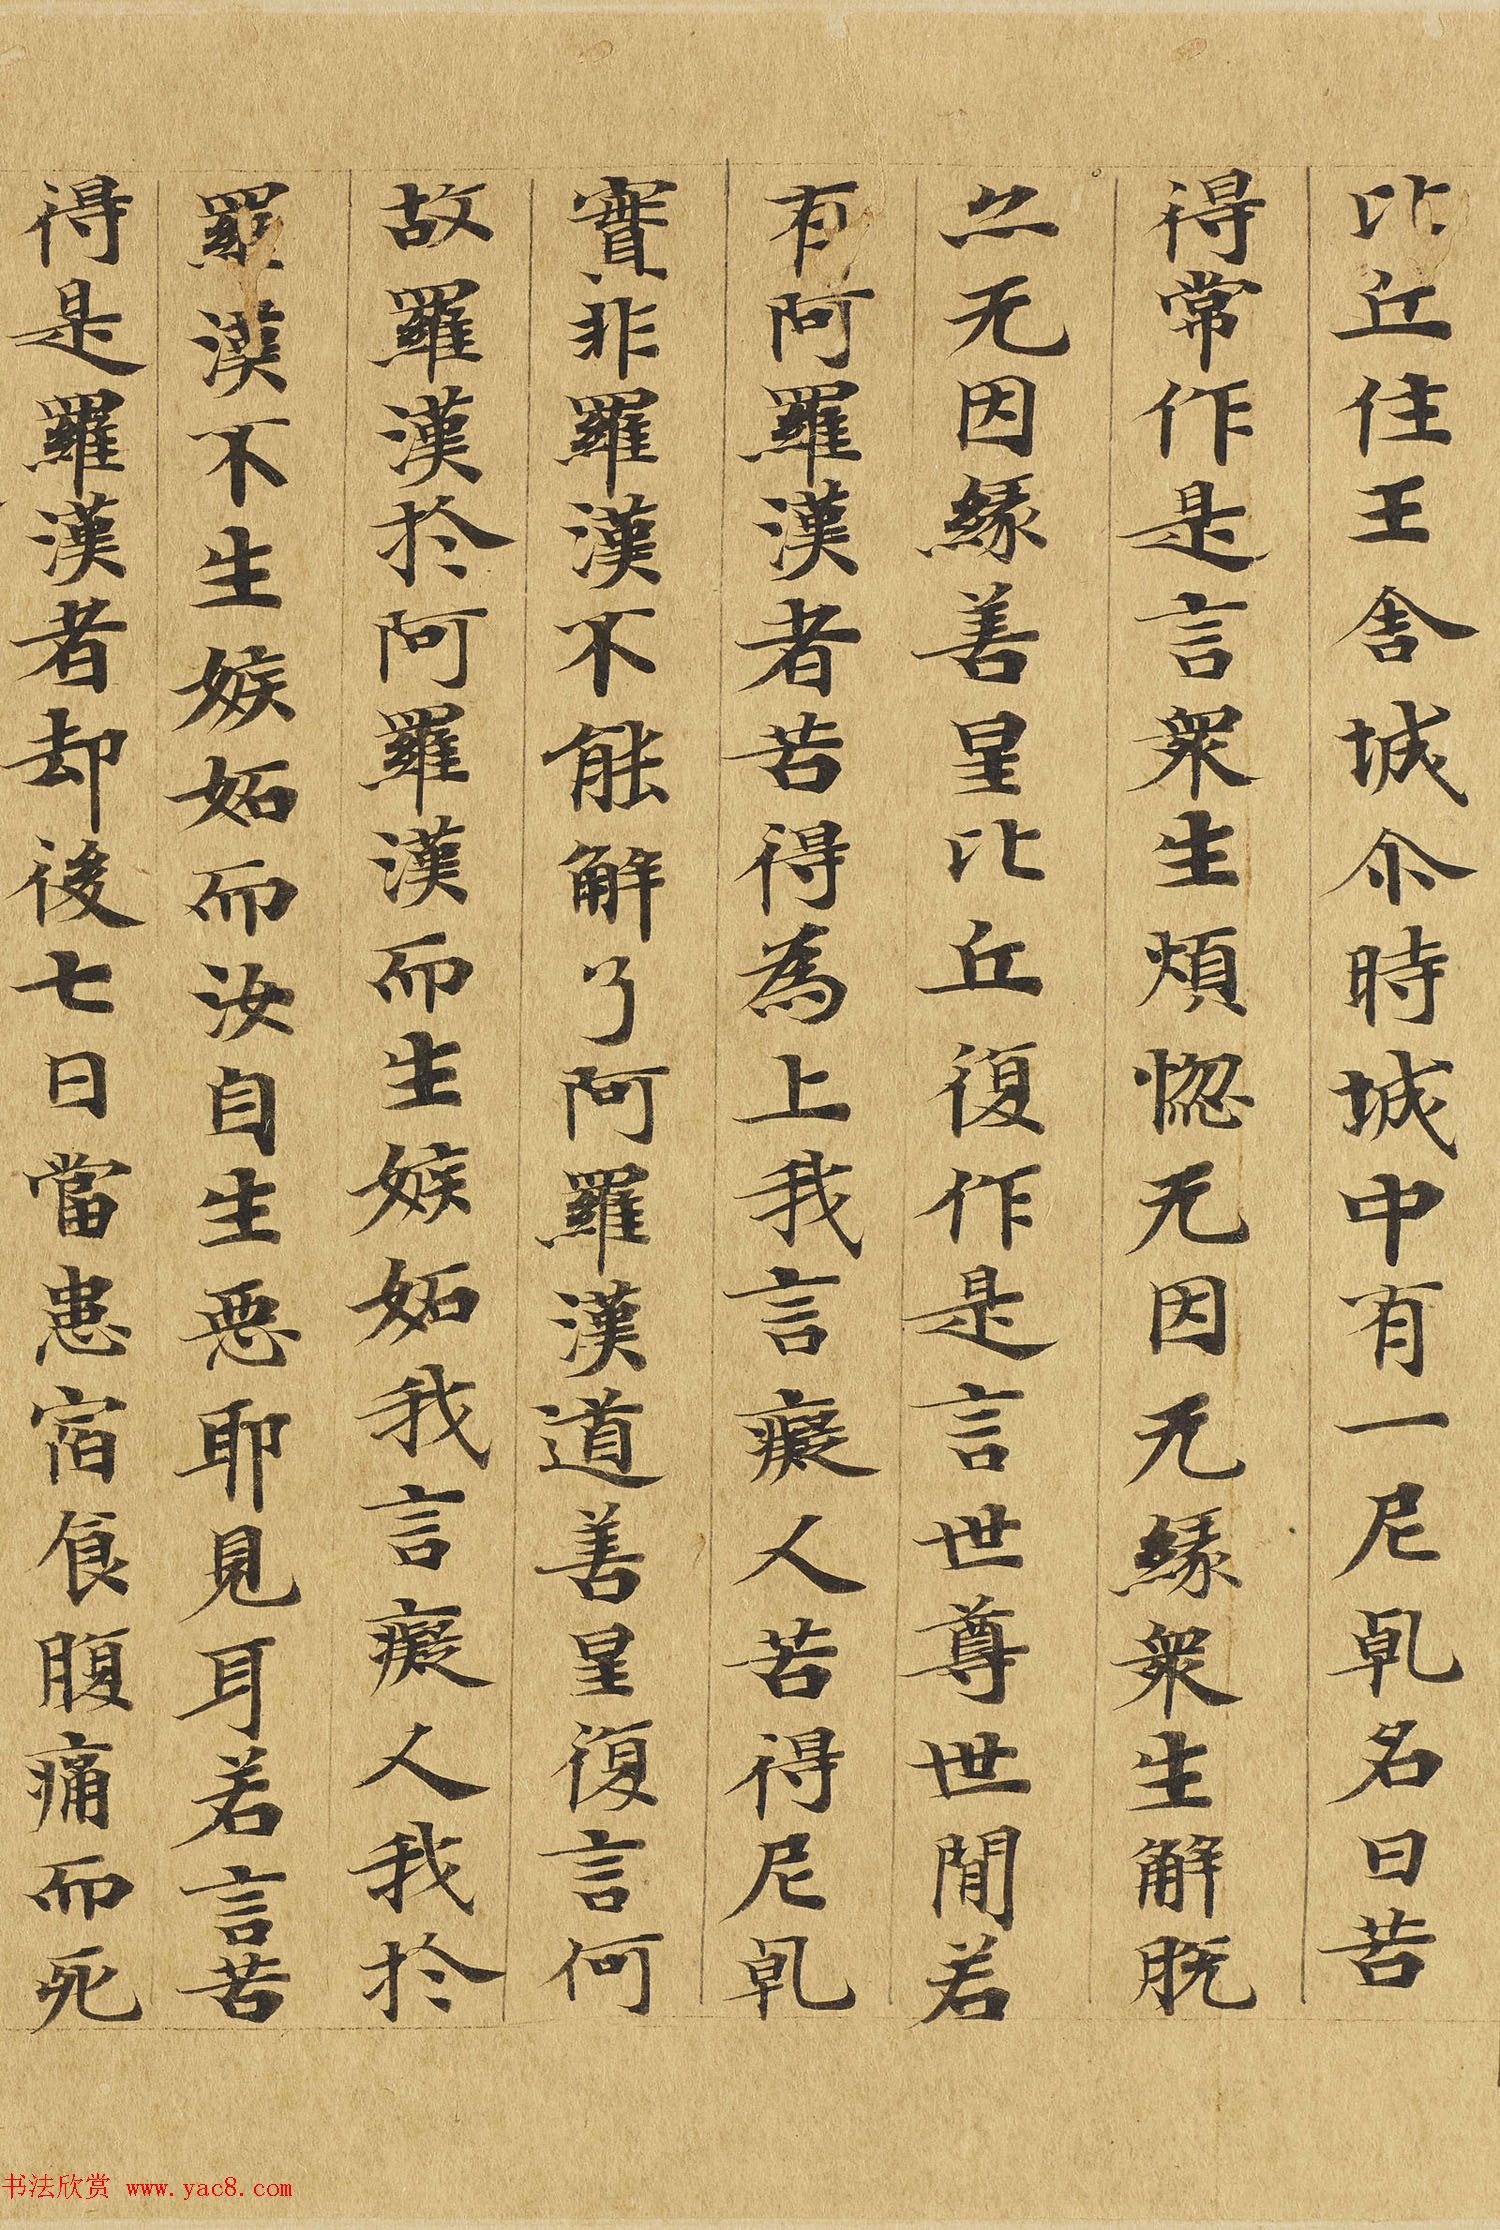 比丘住王舍城尒時城中有一尼乹名曰苦
得常作是言衆生煩惚无因无緣衆生解脫
亦无因緣善星比丘復作是言世尊世閒若
有阿羅漢者苦得為上我言癡人苦得尼乹
實非羅漢不能解了阿羅漢道善星復言何
故羅漢於阿羅漢而生嫉妬我言癡人我於
羅漢不生嫉妬而汝自生惡耶見耳若言苦
得是羅漢者却後七日當患宿食腹痛而死
书法欣赏 www.yac8.com